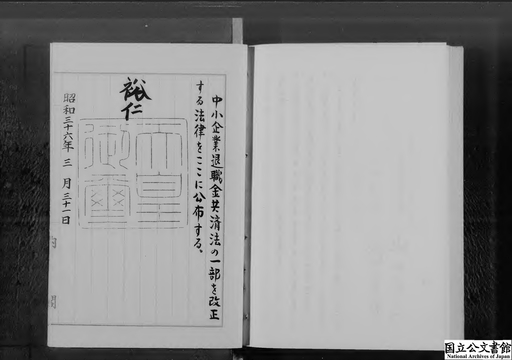 中小企業退職金共済法の一部を改正
する法律をここに公布する、
裕仁
天皇
御璽
昭和三十六年三月三十一日
内閣
国立公文書館
National Archives of Japan